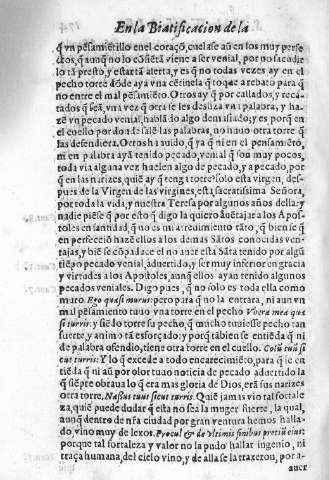 En la Biatificacion de la
q̃ vn pẽsamiẽtillo en el coraçõ, cuelase aũ en los muy perfe-
ctos, q̃ aunq̃ no lo cõsiẽtã viene a ser venial, por no sacudir
lo tã presto, y estar tã alerta, y es q̃ no todas vezes ay en el
pecho torre dõde aya vna cẽtinela q̃ toque a rebato para q̃
no entre el mal pẽsamiẽto. Otros ay q̃ por callados, y reca-
tados q̃ seã, vna vez q̃ otra se les desliza vna palabra, y ha-
zẽ vn pecado venial, hablãdo algo demasiado; y es porq̃ en
el cuello por donde salẽ las palabras, no huuo otra torre q̃
las defendiera. Otros ha auido, q̃ ya q̃ ni en el pensamiẽto,
ni en palabra ayã tenido pecado venial, q̃ sou muy pocos,
toda via alguna vez huelen algo de pecado, y a pecado, por
q̃ en las narizes, quiẽ ay q̃ tenga torre? solo esta virgen, des-
pues de la Virgen de las virgines, esta sacratissima Señora,
por toda la vida, y nuestra Teresa por algunos años della: y
nadie piẽse q̃ por esto q̃ digo la quiero auẽtajar a los Apos-
toles en santidad, q̃ no es mi atreuimiento tãto, q̃ bien sè q̃
en perfecciõ hazẽ ellos a los demas Sãtos conocidas ven-
tajas, y biẽ se cõpadece el no auer esta Sãta tenido por algũ
tiẽpo pecado venial aduertido, y ser muy inferior en gracia
y virtudes a los Apostoles, aunq̃ ellos ayan tenido algunos
pecados veniales. Digo pues, q̃ no solo es toda ella como
muro. Ego quasi murus: pero para q̃ no la entrara, ni aun vn
mal pẽsamiento tuuo vna torre en el pecho Vbera mea qua
si turris: y siẽdo torre su pecho, q̃ mucho tuuiesse pecho tan
fuerte, y animo tã esforçado: y porq̃ tãbien se entiẽda q̃ ni
de palabra ofendio, tiene otra torre en el cuello. Collũ tuũ si
cut turris: Y lo q̃ excede a todo encarecimiẽto, para q̃ se en
tiẽda q̃ ni aũ por olor tuuo noticia de pecado aduertido la
q̃ siẽpre obraua lo q̃ era mas gloria de Dios, erã sus narizes
otra torre, Nasus tuus sicut turris. Quiẽ jamas vio tal fortale-
za, quiẽ puede dudar q̃ esta no sea la muger fuerte, la qual,
aunq̃ dentro de nr̃a ciudad por gran ventura hemos halla-
do, vino muy de lexos. Procul & de vltimis finibus pretiũ eius:
porque tal fortaleza y valor no la pudo hallar ingenio, ni
traça humana, del cielo vino, y de alla se la traxeron, por a-
auer